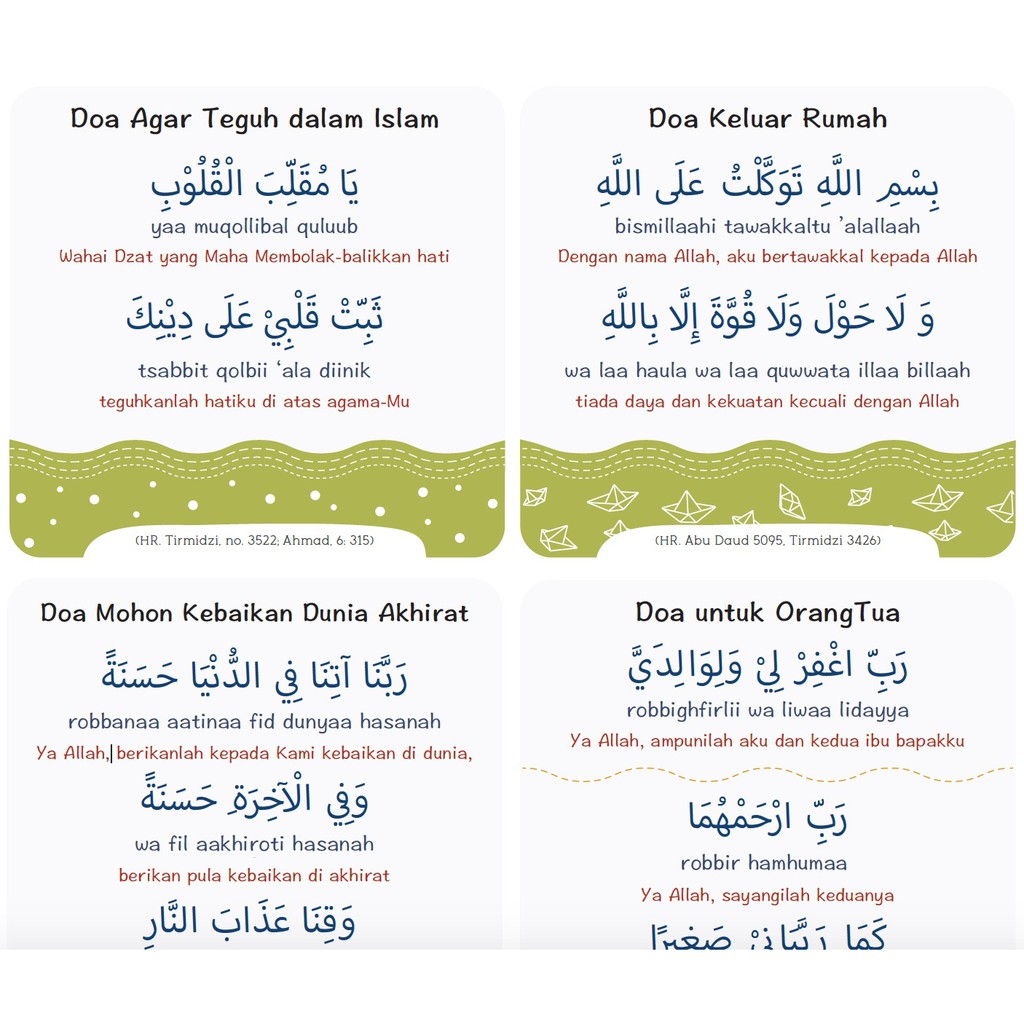 Doa Agar Teguh dalam Islam
يَا مُقَلِّبَ الْقُلُوْبِ
yaa muqollibal quluub
Wahai Dzat yang Maha Membolak-balikkan hati
ثَبِّتْ قَلْبِيْ عَلَى دِيْنِكَ
tsabbit qolbii ‘ala diinik
teguhkanlah hatiku di atas agama-Mu
(HR. Tirmidzi, no. 3522; Ahmad, 6: 315)
Doa Keluar Rumah
بِسْمِ اللَّهِ تَوَكَّلْتُ عَلَى اللَّهِ
bismillaahi tawakkaltu ’alallaah
Dengan nama Allah, aku bertawakkal kepada Allah
وَ لَا حَوْلَ وَلَا قُوَّةَ إِلَّا بِاللَّهِ
wa laa haula wa laa quwwata illaa billaah
tiada daya dan kekuatan kecuali dengan Allah
(HR. Abu Daud 5095, Tirmidzi 3426)
Doa Mohon Kebaikan Dunia Akhirat
رَبَّنَا آتِنَا فِي الدُّنْيَا حَسَنَةً
robbanaa aatinaa fid dunyaa hasanah
Ya Allah, berikanlah kepada Kami kebaikan di dunia,
وَفِي الْآخِرَةِ حَسَنَةً
wa fil aakhiroti hasanah
berikan pula kebaikan di akhirat
وَقِنَا عَذَابَ النَّارِ
Doa untuk OrangTua
رَبِّ اغْفِرْ لِيْ وَلِوَالِدَيَّ
robbighfirlii wa liwaa lidayya
Ya Allah, ampunilah aku dan kedua ibu bapakku
رَبِّ ارْحَمْهُمَا
robbir hamhumaa
Ya Allah, sayangilah keduanya
كَمَا رَبَّيَانِيْ صَغِيرًا